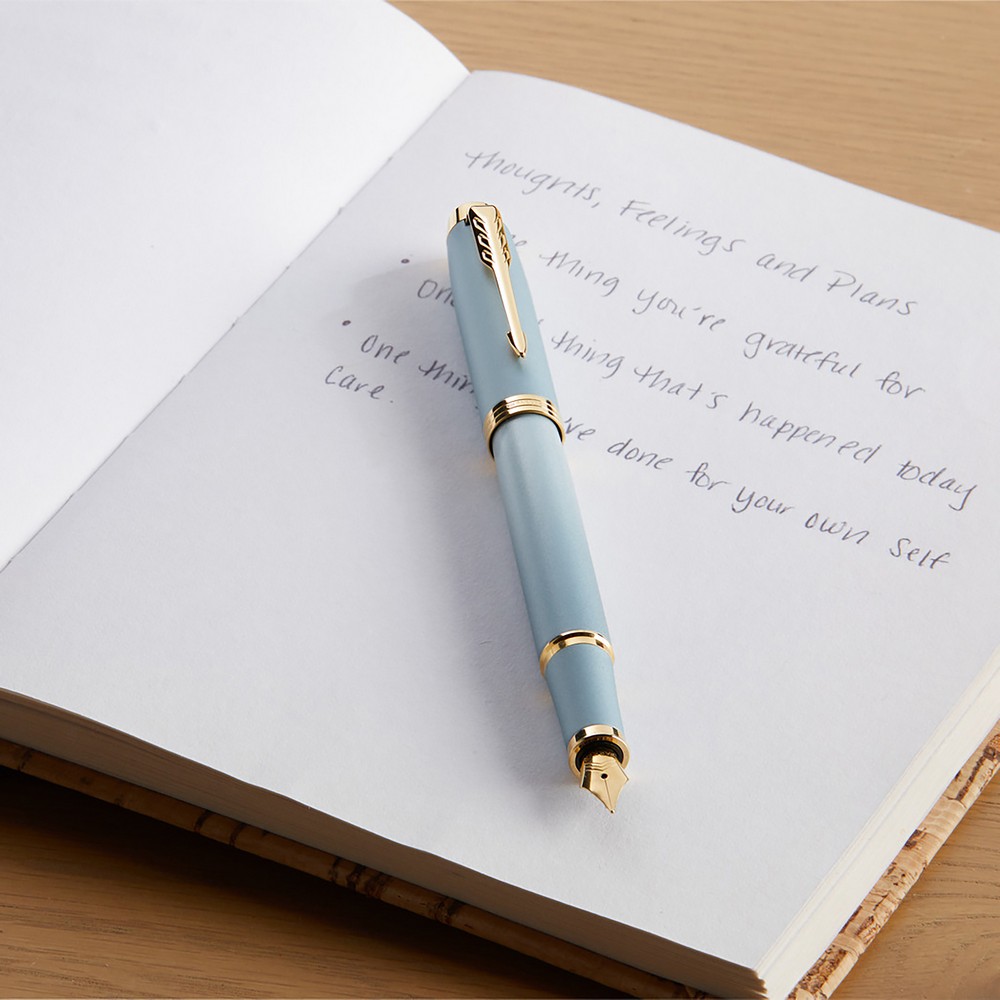 thoughts, Feelings and Plans
• thing you're grateful for
• thing that's happened today
one you've done for your own self
care.